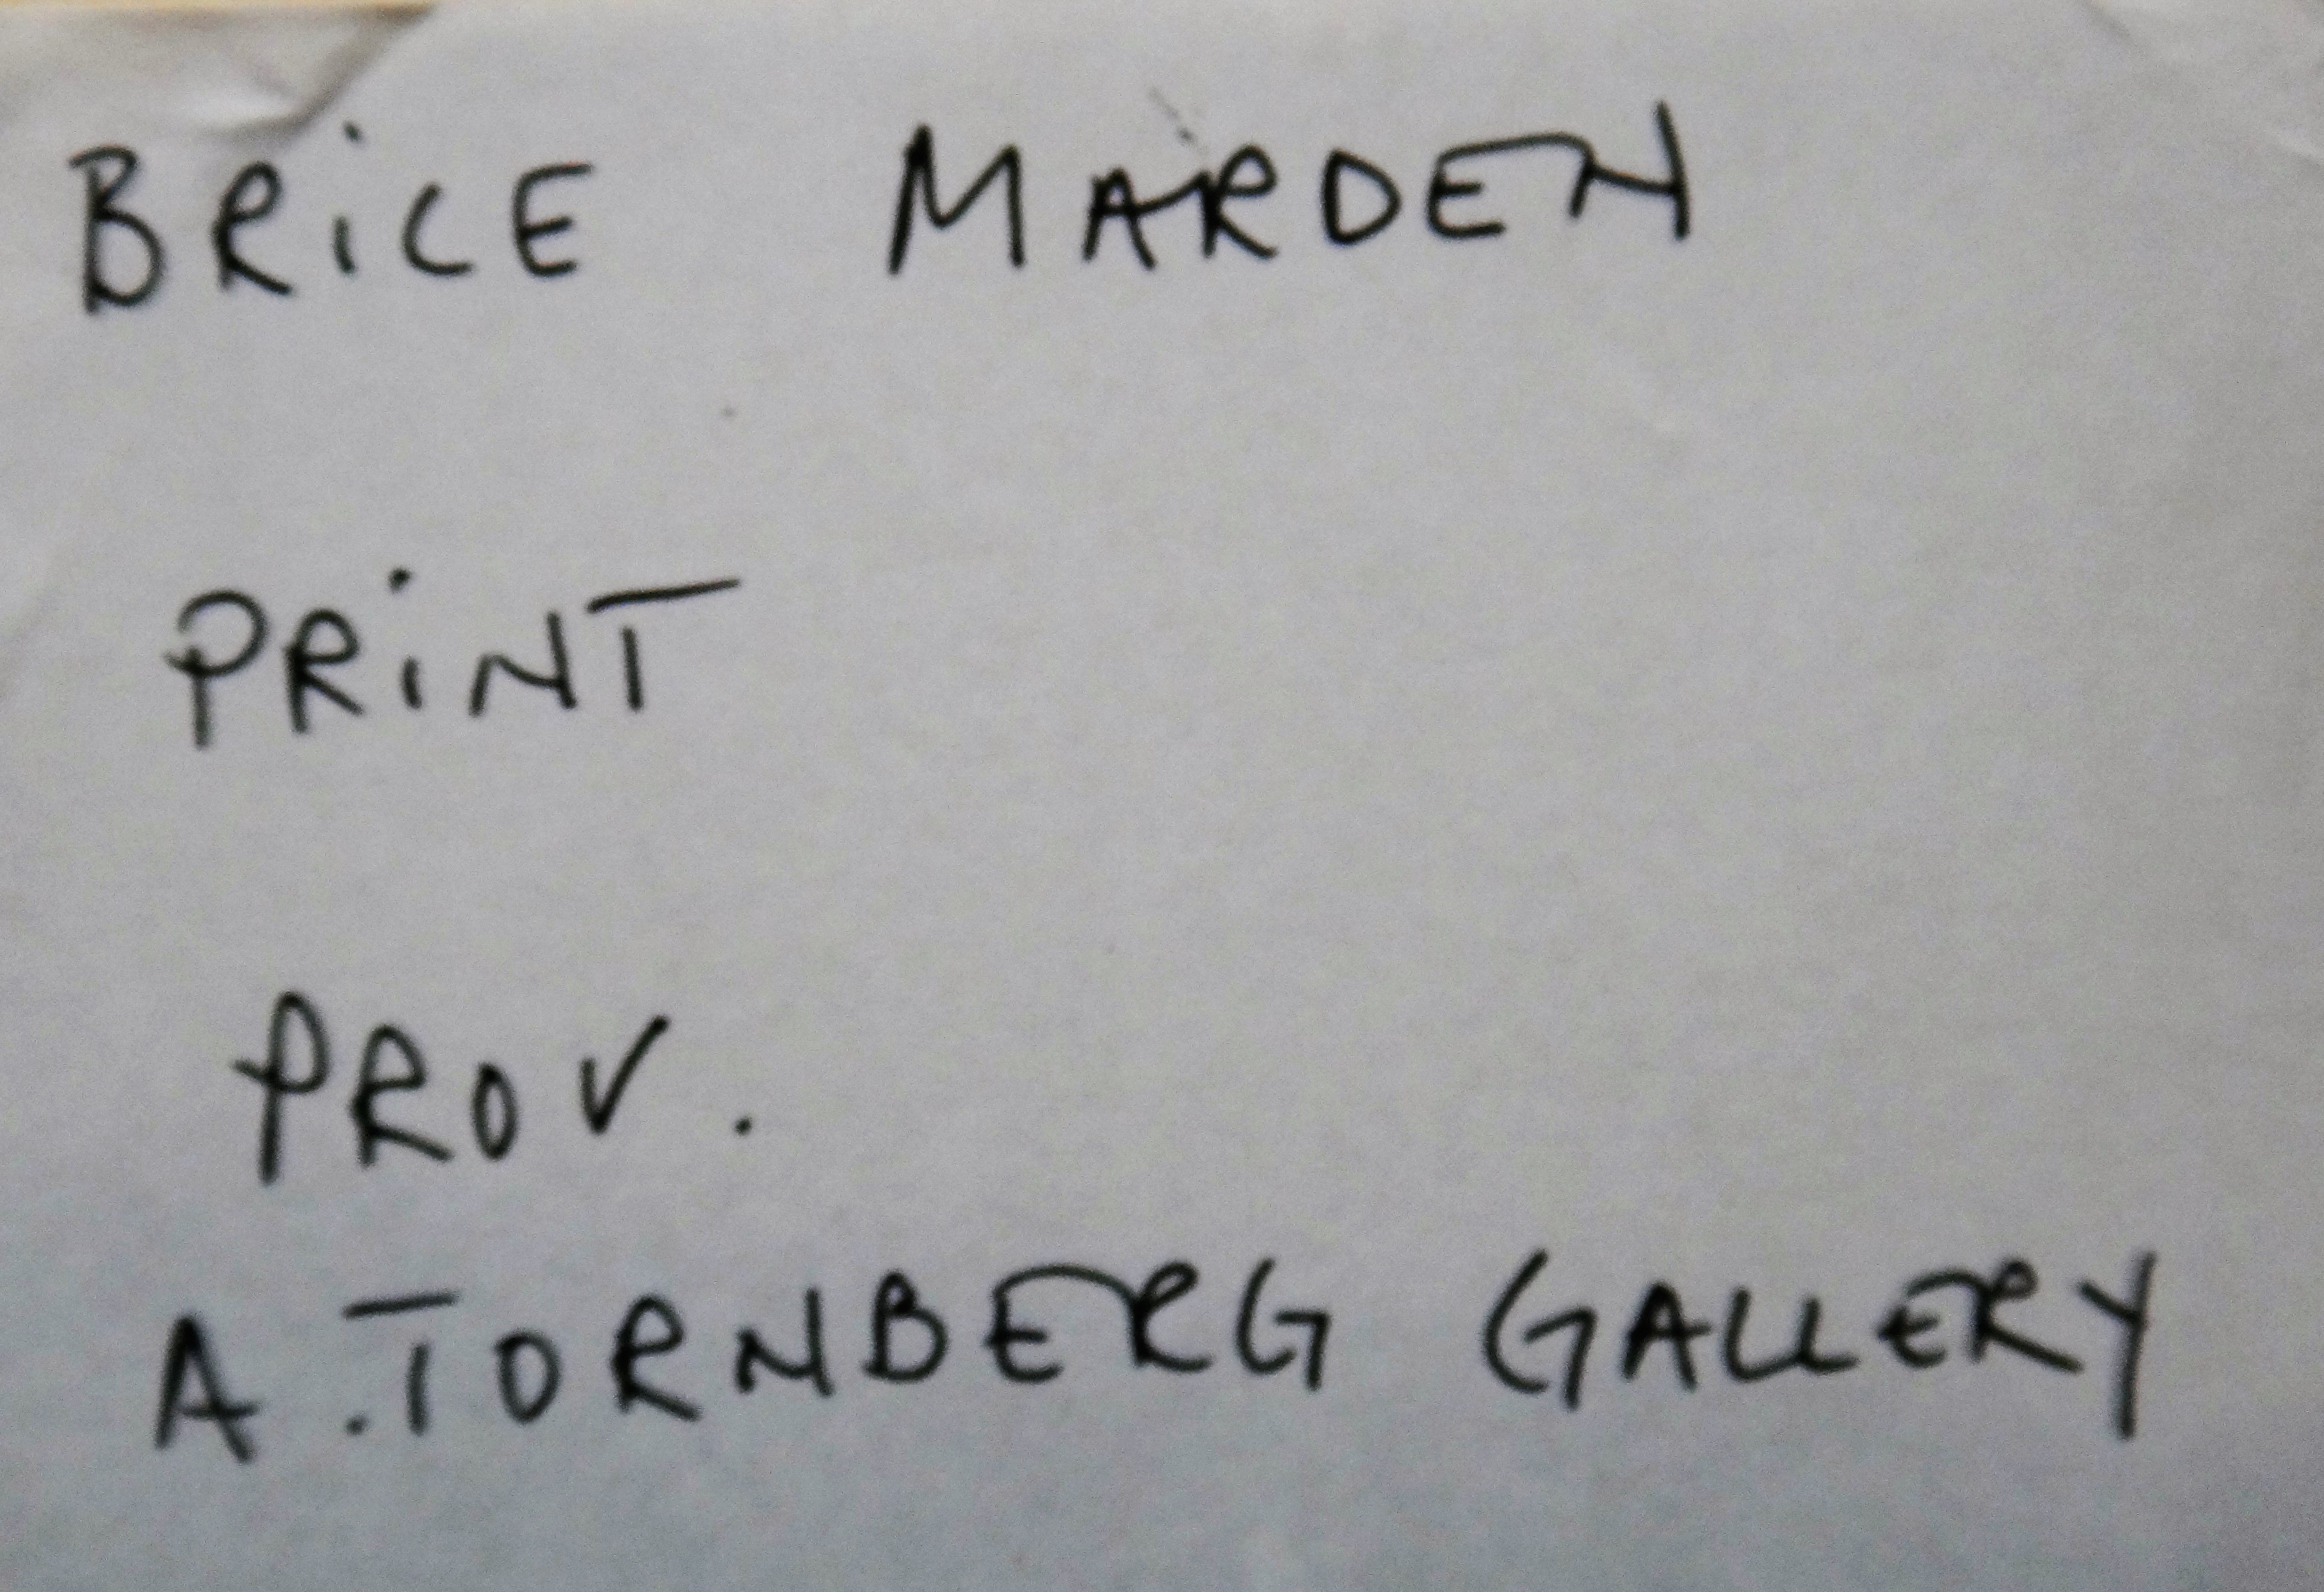 BRiCE MARDEN
PRiNT
PROV.
A.TORNBERG GALLERY